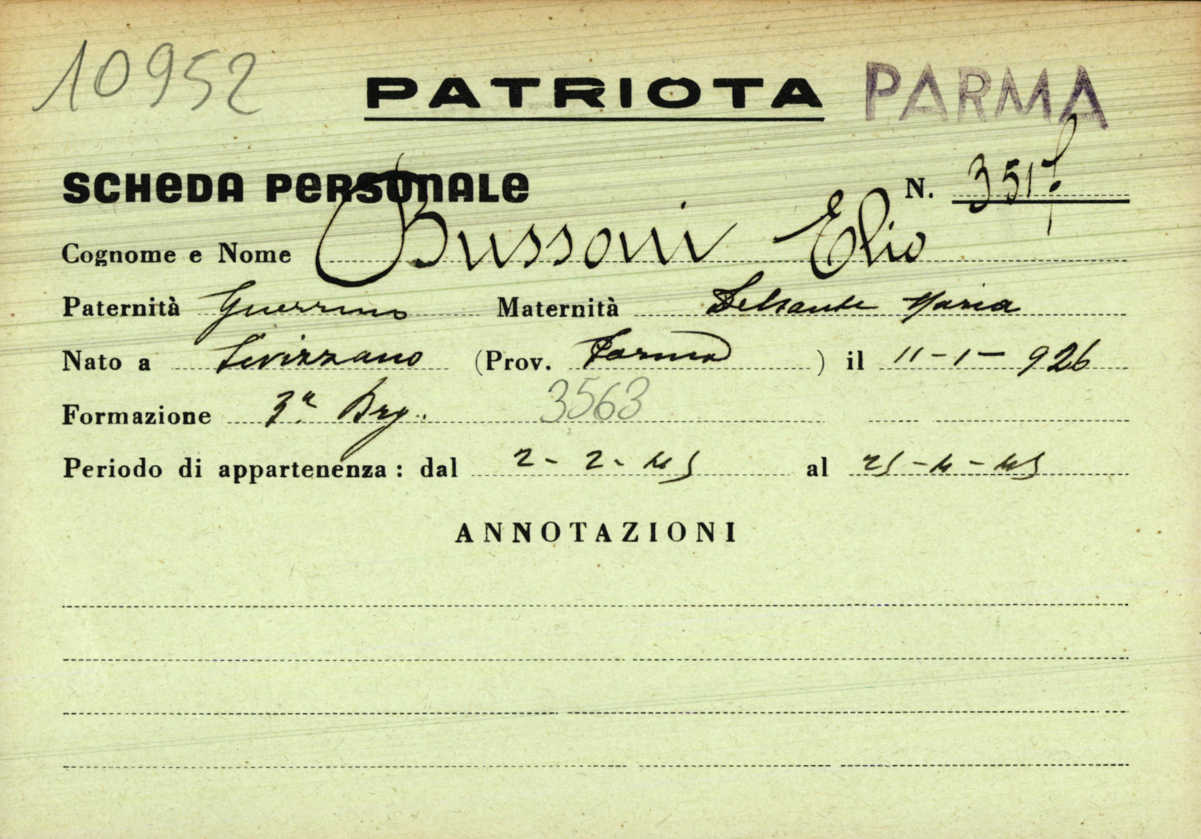 10952
PATRIOTA PARMA
SCHEDA PERSONALE N. 351
Cognome e Nome Bussoni Elio
Paternità Guerrino Maternità Delsante Maria
Nato a (Prov. Parma) il 11-1-926
Formazione 3ª Brg. 3563
Periodo di appartenenza: dal 2-2-45 al 25-4-45
ANNOTAZIONI